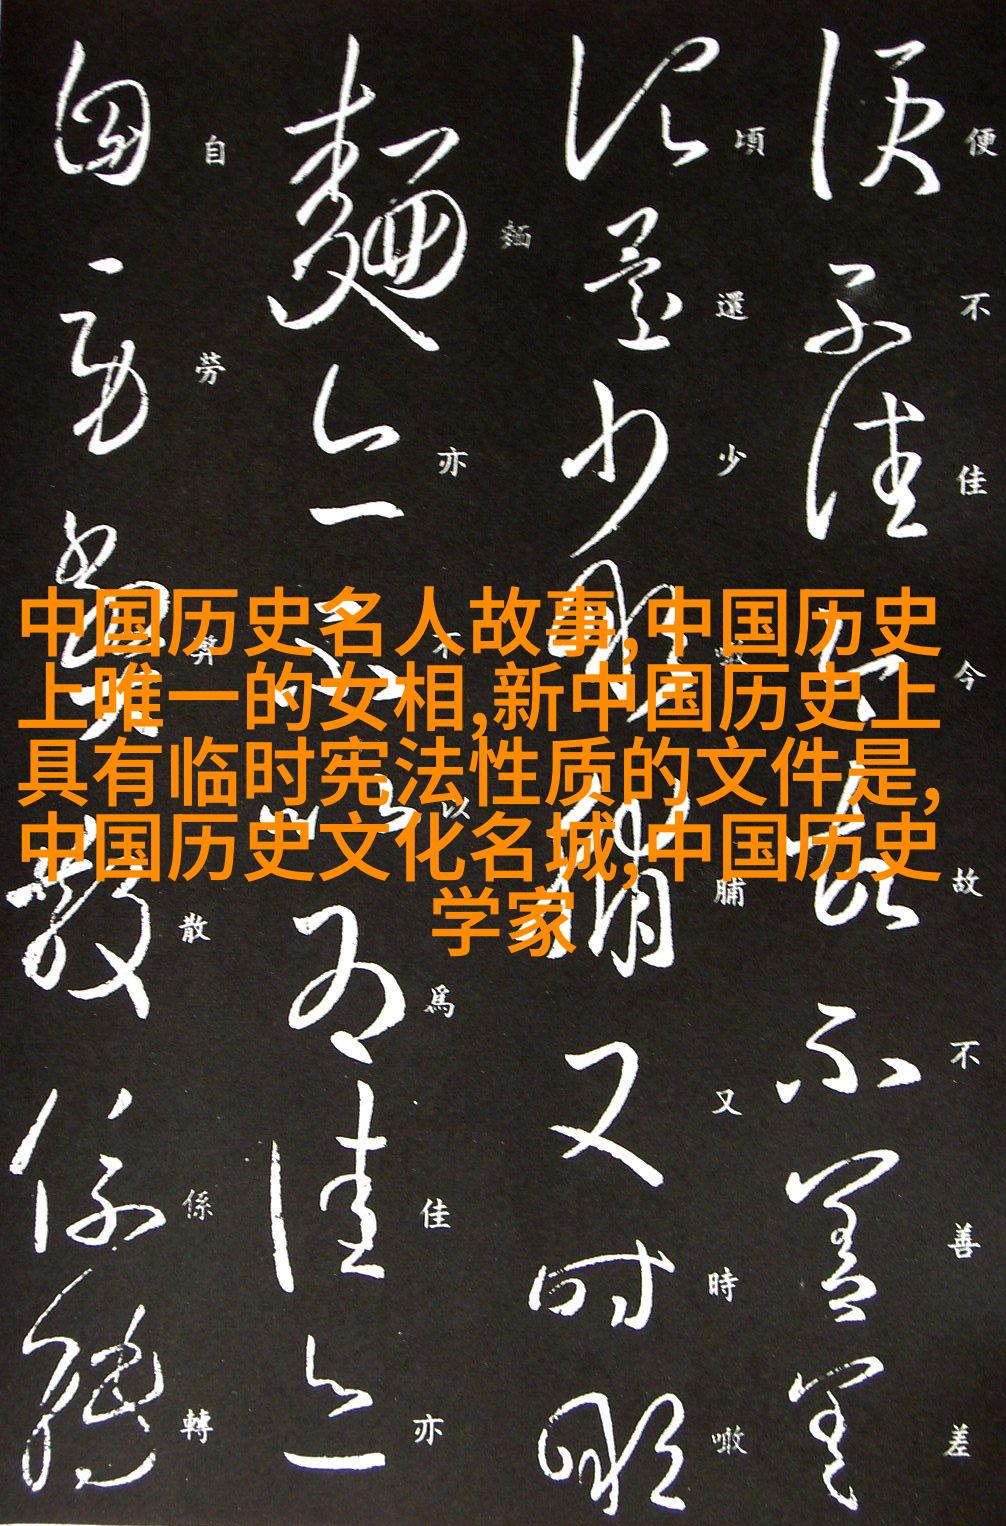 便不佳今故不善差
頃還少噉脯又時噉
麵亦不以為佳亦
自勞弊散係轉
中国历史名人故事,中国历史
上唯一的女相,新中国历史上
具有临时宪法性质的文件是,
中国历史文化名城,中国历史
学家